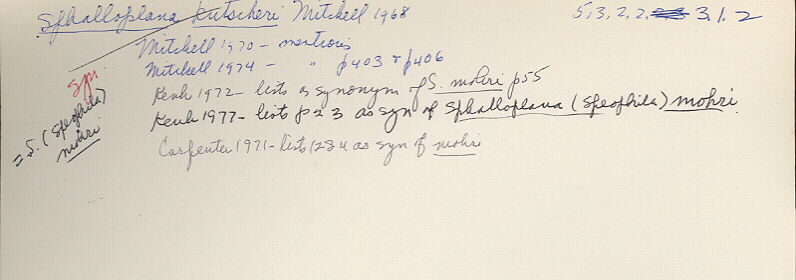 Sphalloplana kutscheri Mitchell 1968 5, 3, 2, 2, 3, 1, 2
Mitchell 1970 - mentions
Mitchell 1974 - " p403 & p406
Kenk 1972 - lists as synonym of S. mohri p55
Kenk 1977 - lists p23 as syn of Sphalloplana (Speophila) mohri
Carpenter 1971 - lists 1284 as syn of mohri
syn.
= S. (Speophila)
mohri